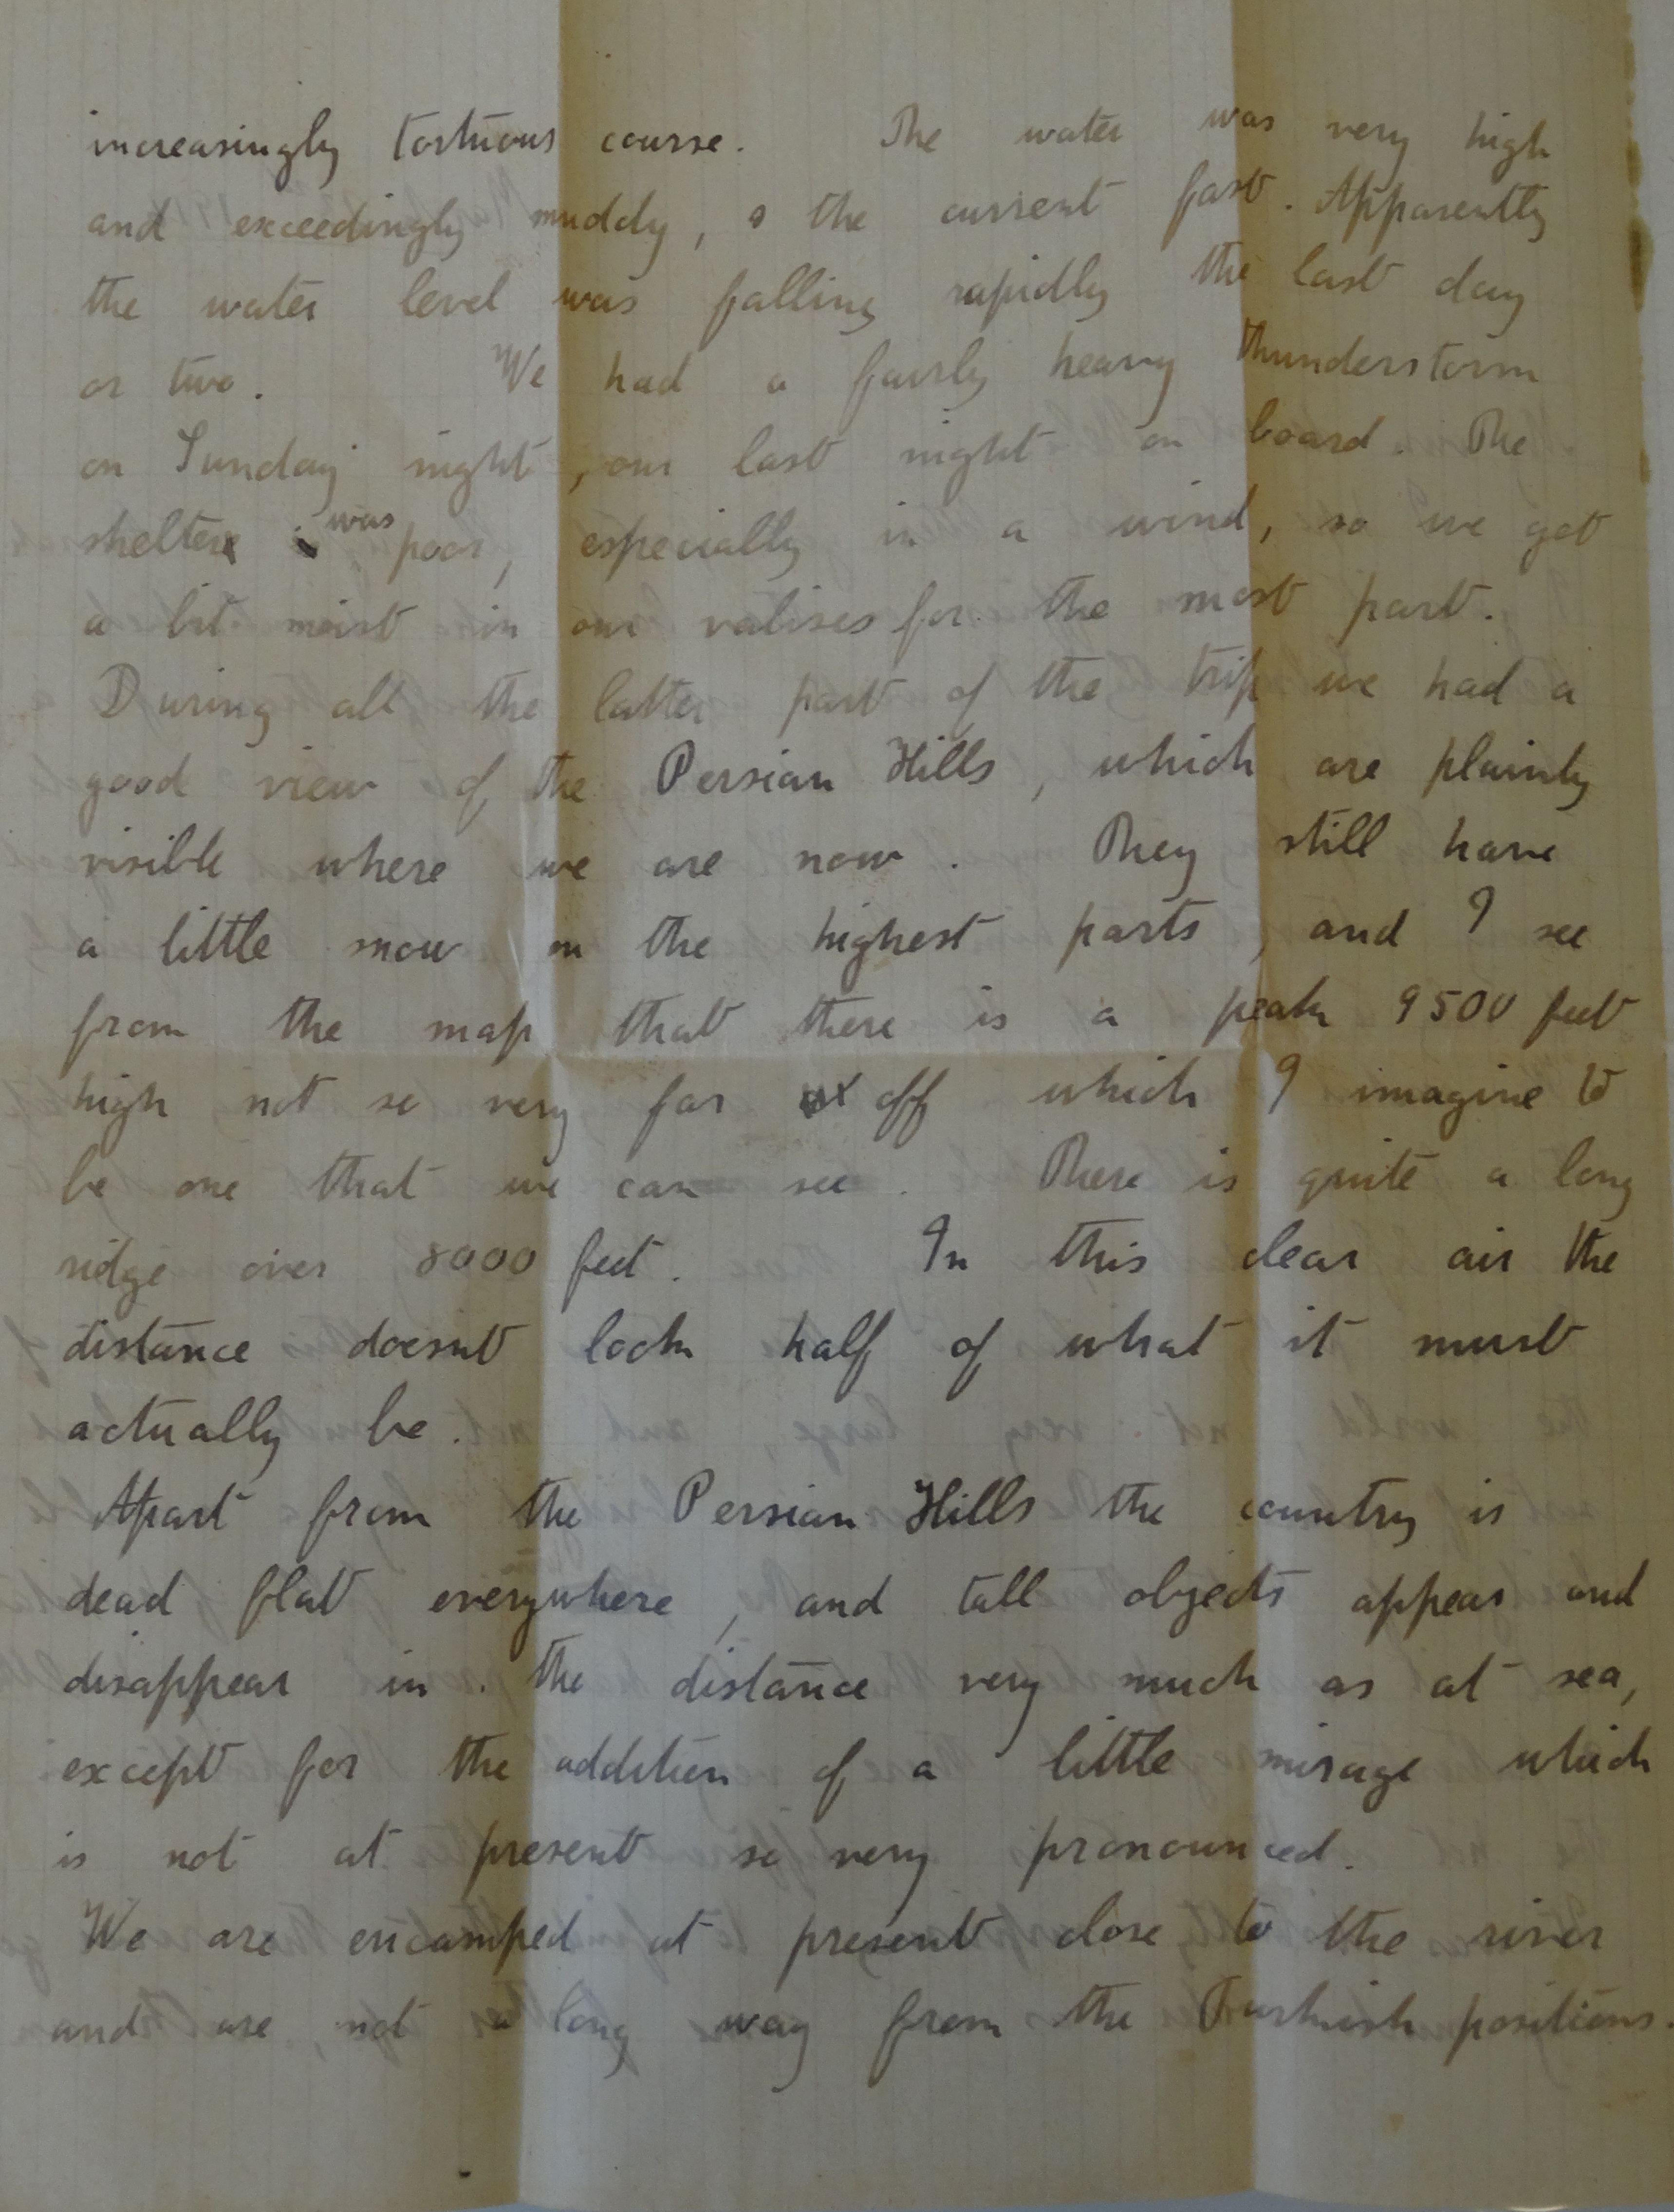 increasingly tortuous course. The water was very high
and exceedingly muddy, & the current fast. Apparently
the water level was falling rapidly the last day
or two. We had a fairly heavy thunderstorm
on Sunday night, our last night on board. The
shelter was poor, especially in a wind, so we got
a bit moist in our valises for the most part.
During all the latter part of the trip we had a
good view of the Persian Hills, which are plainly
visible where we are now. They still have
a little snow on the highest parts, and I see
from the map that there is a peak 9500 feet
high not so very far off which I imagine to
be one that we can see. There is quite a long
ridge over 8000 feet. In this clear air the
distance doesnt look half of what it must
actually be.
Apart from the Persian Hills the country is
dead flat everywhere, and tall objects appear and
disappear in the distance very much as at sea,
except for the addition of a little mirage which
is not at present so very pronounced.
We are encamped at present close to the river
and are, not a long way from the Turkish positions.